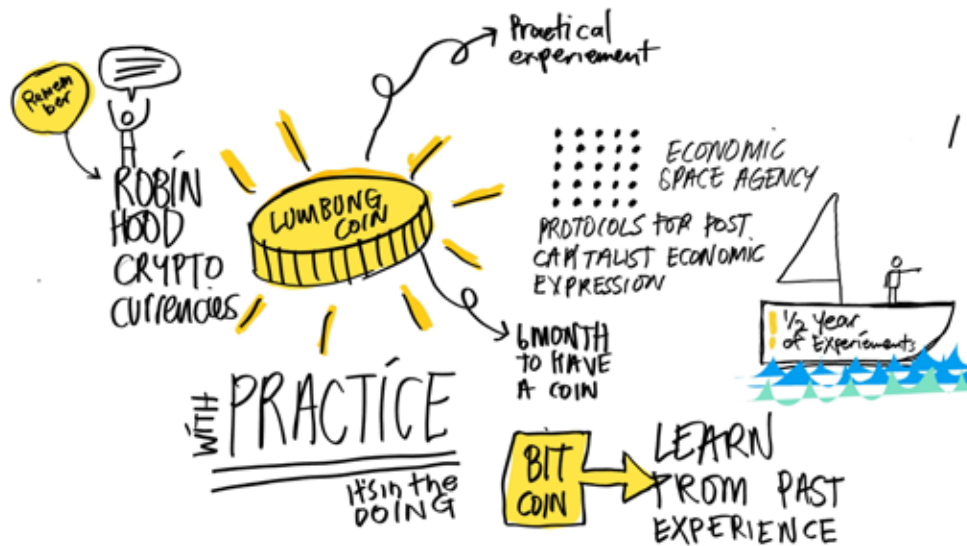 Remem
ber
ROBIN
HOOD
CRYPTO
currencies
Practical
experiement
LUMBUNG
COIN
ECONOMIC
SPACE AGENCY
PROTOCOLS FOR POST
CAPITALIST ECONOMIC
EXPRESSION
6 MONTH
TO HAVE
A COIN
1/2 Year
of Experiements
WITH
PRACTICE
It's in the
DOING
BIT
COIN
LEARN
FROM PAST
EXPERIENCE